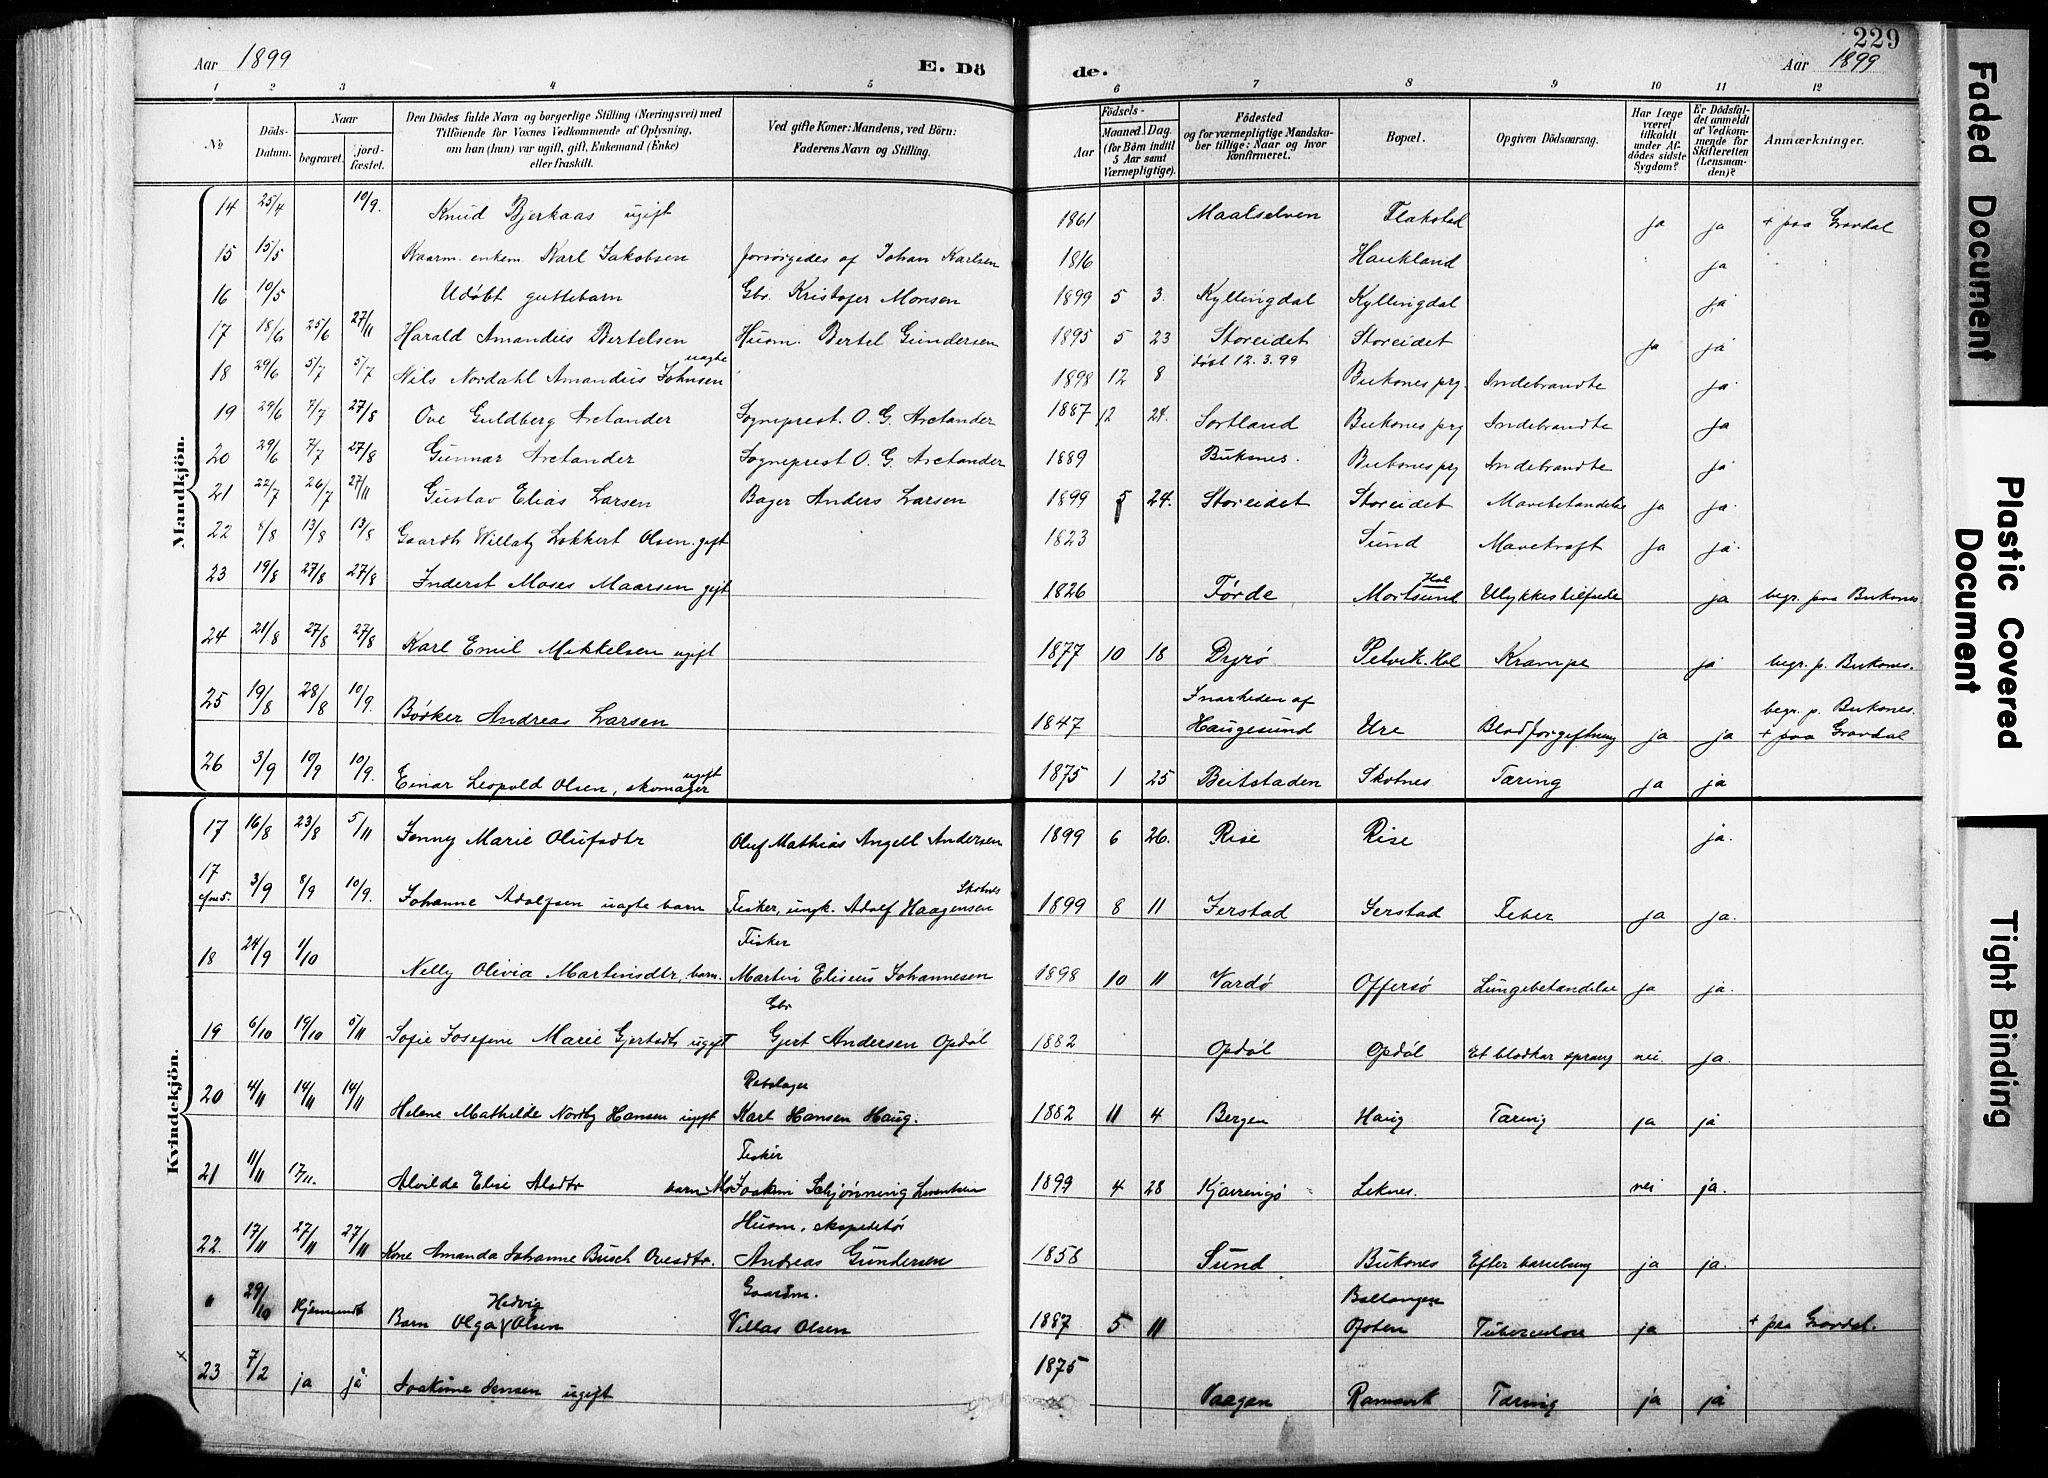 Aar 1899
E. Dö
de.
229
Aar 1899
1 2 3 4 5 6 7 8 9 10 11 12
No
Döds-Datum.
Naar
begravet.
jord-fæstet.
Den Dödes fulde Navn og borgerlige Stilling (Næringsvei) med
Tilföiende for Voxnes Vedkommende af Oplysning,
om han (hun) var ugift, gift, Enkemand (Enke)
eller fraskilt.
Ved gifte Koner: Mandens, ved Börn:
Faderens Navn og Stilling.
Födsels-
Aar
Maaned Dag
(for Börn indtil
5 Aar samt
Værnepligtige).
Födested
og for værnepligtige Mandska-
ber tillige: Naar og hvor
konfirmeret.
Bopæl.
Opgiven Dödsaarsag.
Har Læge
været
tilkaldt
under Af-
dödes sidste
Sygdom?
Er Dödsfal-
det anmeldt
af Vedkom-
mende for
Skifteretten
(Lensman-
den)?
Anmærkninger.
Mandkjön.
14 25/4 10/9. Knud Bjerkaas ugift 1861 Maalselven Flakstad ja ja + paa Gravdal
15 15/5 Kaarm. enkem. Karl Jakobsen forsørgedes af Johan Karlsen 1816 Haukland ja
16 10/5 Udöbt guttebarn Gbr. Kristofer Monsen 1899 5 3. Kyllingdal Kyllingdal ja
17 18/6 25/6 27/11 Harald Amandus Bertelsen Husm. Bertel Gundersen 1895 5 23 Storeidet Storeidet ja ja
18 29/6 5/7 5/7 Nils Nordahl Amandus Johnsen uagte 1898 12 8 døbt 12.3.99 Buksnes prg. Indebrandte ja
19 29/6 7/7 27/8 Ove Guldberg Arctander Sogneprest O. G. Arctander 1887 12 24. Sortland Buksnes prg Indebrandte ja
20 29/6 7/7 27/8 Gunnar Arctander Sogneprest O. G. Arctander 1889 Buksnes. Buksnes prg Indebrandte ja
21 22/7 26/7 27/11 Gustav Elias Larsen Bager Anders Larsen 1899 5 24. Storeidet Storeidet Mavebetandelse ja ja
22 8/8 13/8 13/8 Gaardb. Willatz Lokkert Olsen. gift 1823 Sund Mavekraft ja ja.
23 19/8 27/8 27/8 Inderst Moses Maarsen gift 1826 Førde Mortsund Hol Ulykkestilfælde ja begr. paa Buksnes
24 21/8 27/8 27/8 Karl Emil Mikkelsen ugift 1877 10 18 Dyrö Petvik. Hol Krampe ja begr. p. Buksnes.
25 19/8 28/8 10/9. Bödker Andreas Larsen 1847 Inarheden af Haugesund Ure Blodforgiftning ja ja begr. p. Buksnes. + paa Gravdal
26 3/9 10/9 10/9. Einar Leopold Olsen, skomager ugift 1875 1 25 Beitstaden Skotnes Tæring ja ja
Kvindekjön.
17 16/8 23/8 5/11 Jenny Marie Olufsdtr Oluf Mathias Angell Andersen 1899 6 26. Rise Rise ja.
17 3/9 8/9 10/9. Johanne Adolfsen uagte barn Fisker, ungk. Adolf Haagensen Skotnes 1899 8 11 Jerstad Jerstad Feber ja ja.
18 24/9 1/10 Nelly Olivia Martinsdtr, barn. Fisker Martin Eliseus Johannesen 1898 10 11 Vardö Offersö Lungebetandelse ja ja.
19 6/10 19/10 5/11 Sofie Josefine Marie Gjertsdtr ugift Gbr Gjert Andersen Opdöl 1882 Opdöl Opdöl Et blodkar sprang nei ja.
20 4/11 14/11 14/11 Helene Mathilde Nordby Hansen ugift Rebslager Karl Hansen Haug. 1882 11 4 Bergen Haug Tæring ja ja
21 11/11 17/11. Alvilde Elise Alsdtr barn Fisker Joakim Schjønning Lorentsen 1899 4 28 Kjærringö Leknes. nei ja.
22. 17/11 27/11 27/11 Kone Amanda Johanne Busch Ovesdtr. Husm. ekspeditör Andreas Gundersen 1858 Sund Buksnes Efter barselseng ja ja.
" 29/10 Hjemsendt Barn Olga Hedvig Olsen Gaardm. Villas Olsen 1887 5 11 Ballangen Ofoten Tuberculose ja + paa Gravdal.
23 7/2 ja ja Joakime Jensen ugift 1875 Vaagan Ramsvik Tæring ja ja
Faded Document
Plastic Covered Document
Tight Binding